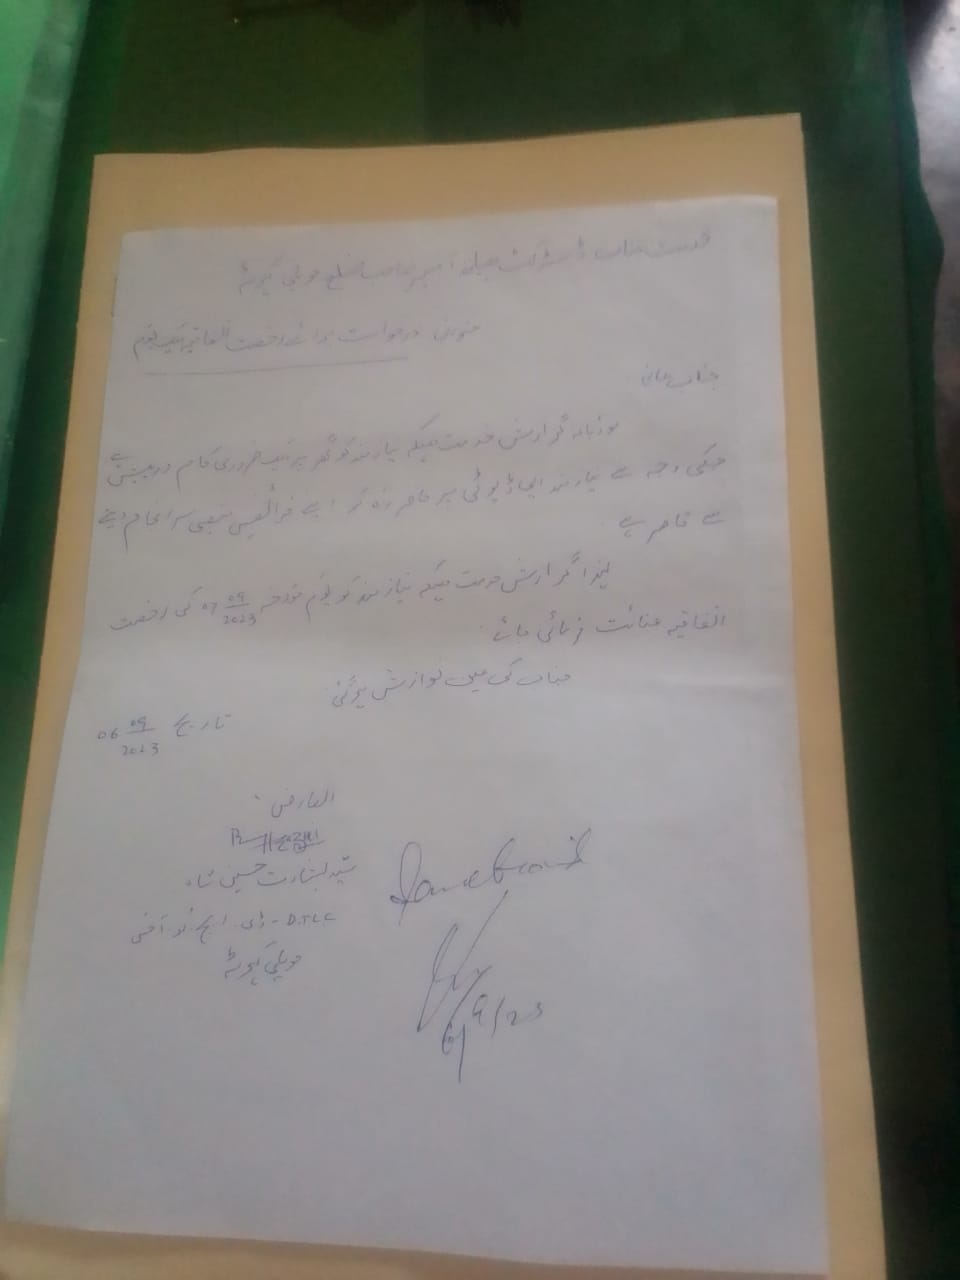 خدمت جناب ڈسٹرکٹ ہیلتھ آفیسر صاحب ضلع حویلی کہوٹہ
عنوان درخواست برائے رخصت اتفاقیہ یک یوم
جناب عالی
مؤدبانہ گزارش خدمت ہیکہ نیازمند کو گھر پر ایک ضروری کام درپیش ہے
جسکی وجہ سے نیازمند اپنی ڈیوٹی پر حاضر رہ کر اپنے فرائض منصبی سرانجام دینے
سے قاصر ہے
لہذا گزارش خدمت ہیکہ نیازمند کو یوم مورخہ 07 09/2023 کی رخصت
اتفاقیہ عنائت فرمائی جائے
جناب کی عین نوازش ہوگی
تاریخ 06 09/2023
العارض
سید بشارت حسین شاہ
D.T.C.C - ڈی ایچ او آفس
حویلی کہوٹہ
6/9/23